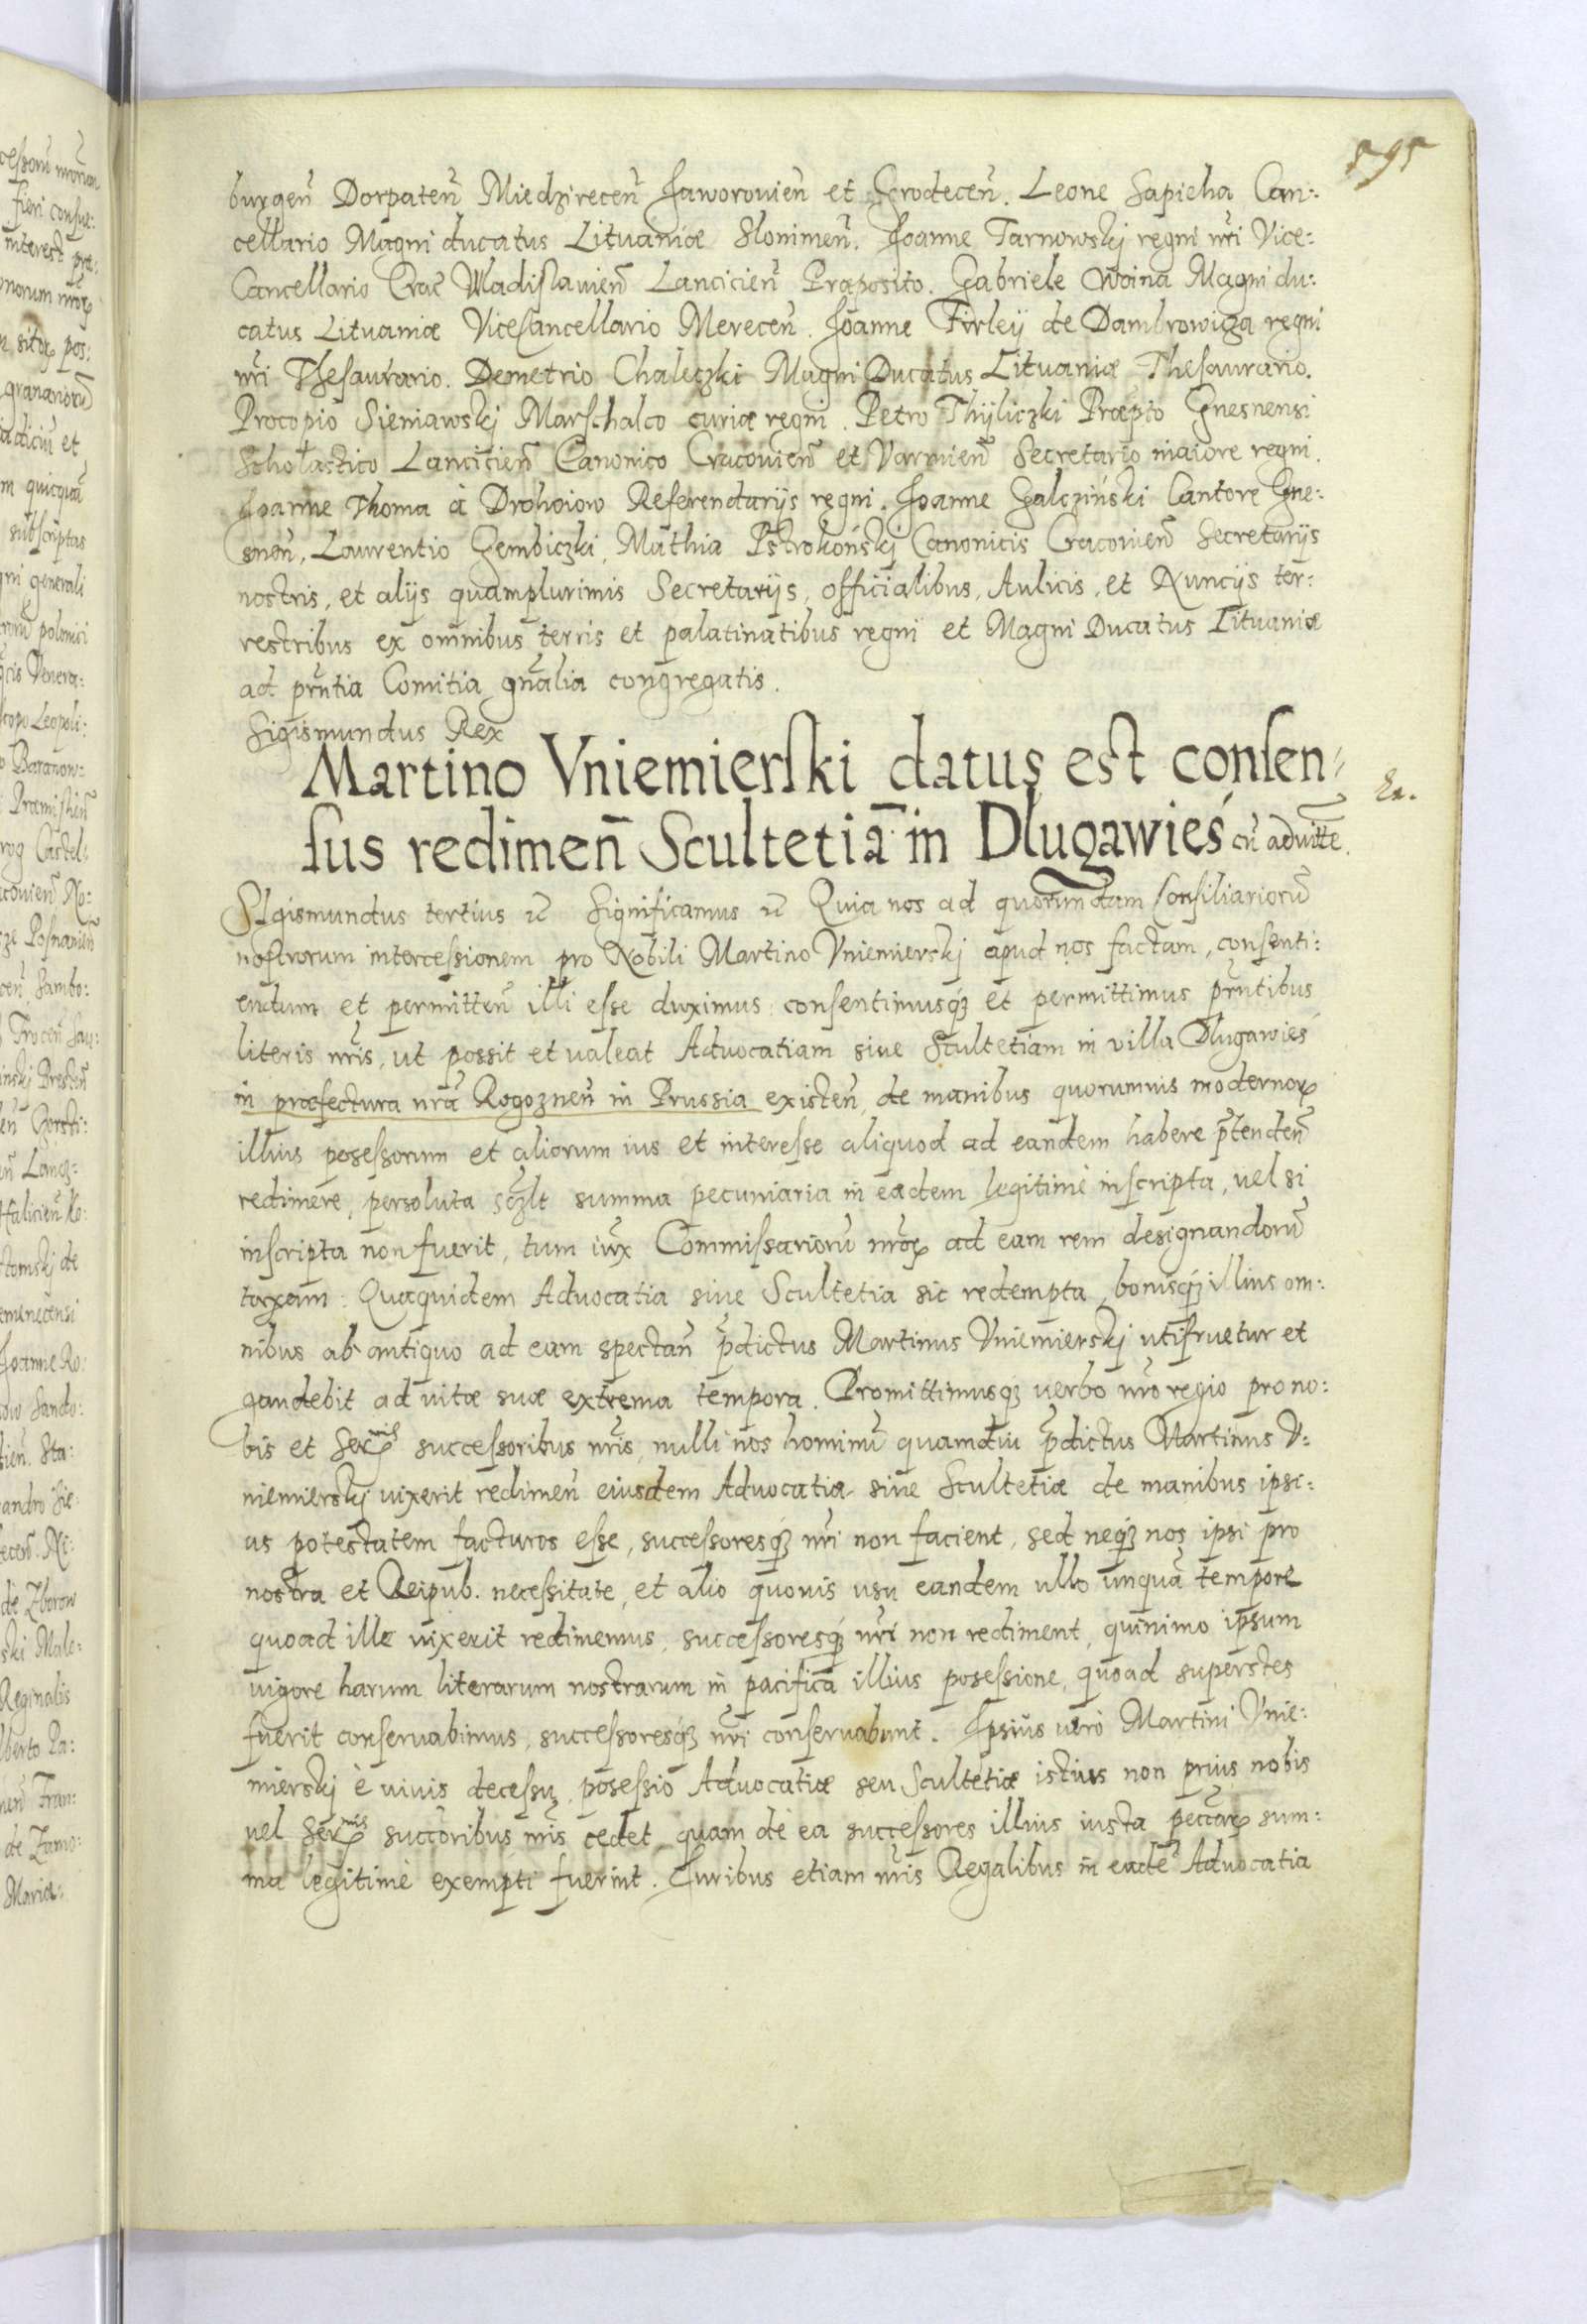 595
burgen̄ Dorpaten̄ Miedzirecen̄ Jaworovien̄ et Grodecen̄. Leone Sapieha Can:
cellario Magni ducatus Lituaniæ Slonimen̄. Joanne Tarnowskj regni nr̄i Vice:
Cancellario Crac̄ Wladislauien̄ Lancicien̄ Præposito. Gabriele Woina Magni du:
catus Lituaniæ ViceCancellario Merecen̄. Joanne Firleÿ de Dambrowiza regni
nr̄i Thesaurario. Demetrio Chaleczki Magni Ducatus Lituaniæ Thesaurario.
Procopio Sieniawskj Marschalco curiæ regni. Petro Thÿliczki Præpto Gnesnensi
Scholastico Lancicien̄ Canonico Cracouien̄ et Varmien̄ Secretario maiore regni.
Joanne Thoma à Drohoiow Referendarijs regni. Joanne Galczinski Cantore Gne:
snen̄, Laurentio Gembiczki, Mathia Pstrokońskj Canonicis Cracouien̄ Secretarijs
nostris, et alijs quamplurimis Secretarijs, officialibus, Aulicis, et Nuncijs ter:
restribus ex omnibus terris et palatinatibus regni et Magni Ducatus Lituaniæ
ad prn̄tia Comitia gnālia congregatis.
Sigismundus Rex
Martino Vniemierski datus est consen:
sus redimen̄ Scultetiā in Dlugawieś cū aduitte.
Sigismundus tertius etc̄ Significamus etc̄ Quia nos ad quorundam Consiliariorū
nostrorum intercessionem pro Nobili Martino Vniemierskj apud nos factam, consenti:
endum et permitten̄ illi esse duximus consentimusq́ʒ et permittimus prn̄tibus
literis nr̄is, ut possit et ualeat Aduocatiam siue Scultetiam in villa Dlugawieś
in præfectura nrā Rogoznen̄ in Prussia existen̄, de manibus quorumuis modernoꝝ
illius posessorum et aliorum ius et interesse aliquod ad eandem habere p̄tenden̄
redimere, persoluta sczlt summa pecuniaria in eadem legitimè inscripta, uel si
inscripta non fuerit, tum iux̄ Commissariorū nr̄oꝝ ad eam rem designandorū
taxam: Quaquidem Aduocatia siue Scultetia sic redempta, bonisq́ʒ illius om:
nibus ab antiquo ad eam spectan̄ p̄dictus Martinus Vniemierskj utifruetur et
gaudebit ad uitæ suæ extrema tempora. Promittimusq́ʒ uerbo nr̄o regio pro no:
bis et Ser̄ꝝ successoribus nr̄is, nulli nos hominū quamdiu p̄dictus Martinus V:
niemierskj uixerit redimen̄ eiusdem Aduocatiæ siue Scultetiæ de manibus ipsi:
us potestatem facturos esse, successoresq́ʒ nr̄i non facient, sed neq́ʒ nos ipsi pro
nostra et Reipub. necessitate, et alio quouis usu eandem ullo unquā tempore
quoad ille uixerit redimemus, successoresq́ʒ nr̄i non rediment, quinimo ipsum
uigore harum literarum nostrarum in pacifica illius posessione, quoad superstes
fuerit conseruabimus, successoresq́ʒ nr̄i conseruabunt. Ipsius uerò Martini Vnie:
mierskj è uiuis decessu, posessio Aduocatiæ seu Scultetiæ istius non prius nobis
uel Ser̄ꝝ succoribus nr̄is cedet, quam de ea successores illius iusta pec̄caꝝ sum:
ma legitimè exempti fuerint. Iuribus etiam nr̄is Regalibus in eadē Aduocatia